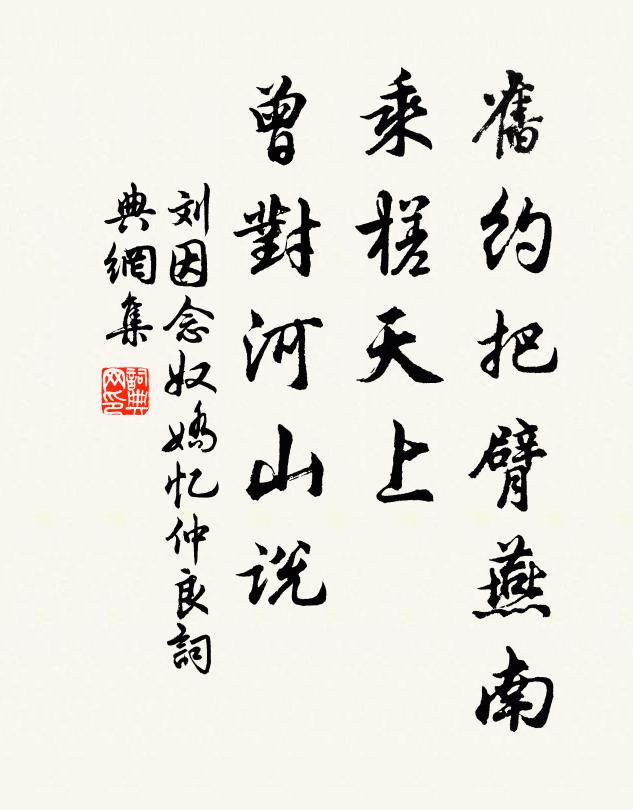 舊約把臂燕南
乘槎天上
曾對河山說
刘因念奴嬌忆仲良詞
典網集
詞典网印